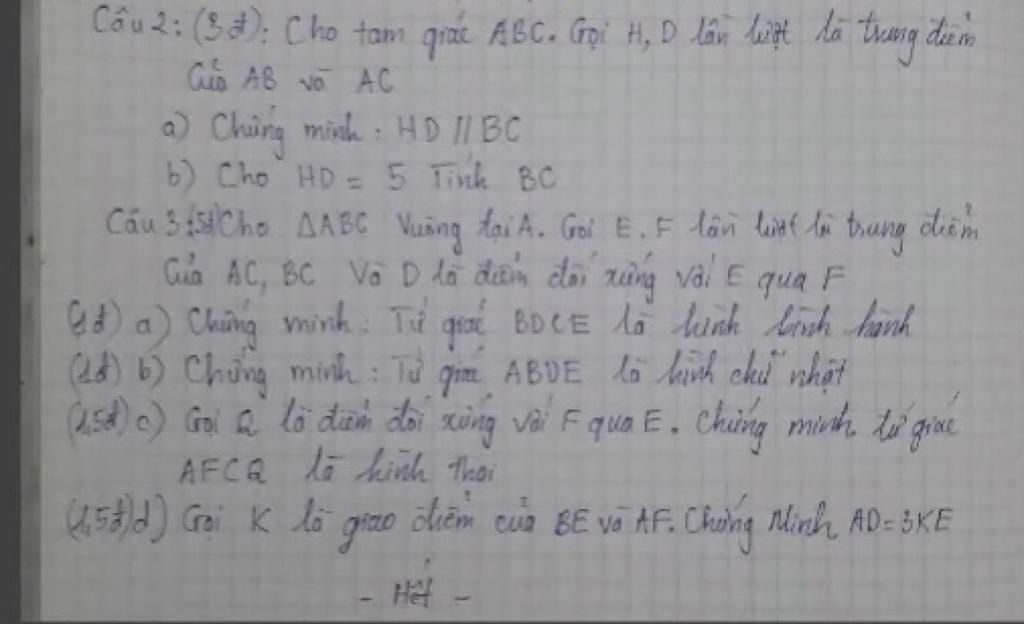 Câu 2: (3đ): Cho tam giác ABC. Gọi H, D lần lượt là trung điểm
Của AB và AC
a) Chứng minh: HD // BC
b) Cho HD = 5 Tính BC
Câu 3: (5đ) Cho ΔABC Vuông tại A. Gọi E, F lần lượt là trung điểm
Của AC, BC Và D là điểm đối xứng với E qua F
(1đ) a) Chứng minh: Tứ giác BDCE là hình bình hành
(1đ) b) Chứng minh: Tứ giác ABDE là hình chữ nhật
(1,5đ) c) Gọi Q là điểm đối xứng với F qua E. Chứng minh tứ giác
AFCQ là hình thoi
(1,5đ) d) Gọi K là giao điểm của BE và AF. Chứng Minh AD = 3KE
- Hết -